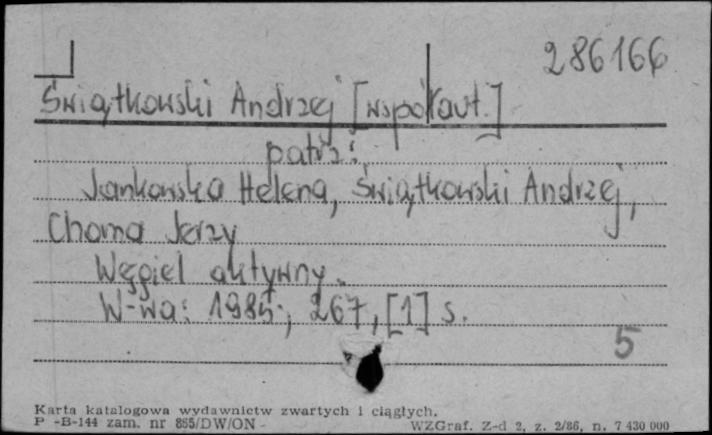 286166
Świątkowski Andrzej [współaut.]
patrz:
Jankowska Helena, Świątkowski Andrzej,
Choma Jerzy
Węgiel aktywny.
W-wa: 1985, 267, [1] s.
5
Karta katalogowa wydawnictw zwartych i ciągłych.
P-B-144 zam. nr 855/DW/ON - WZGraf. Z-d 2, z. 2/86, n. 7 430 000